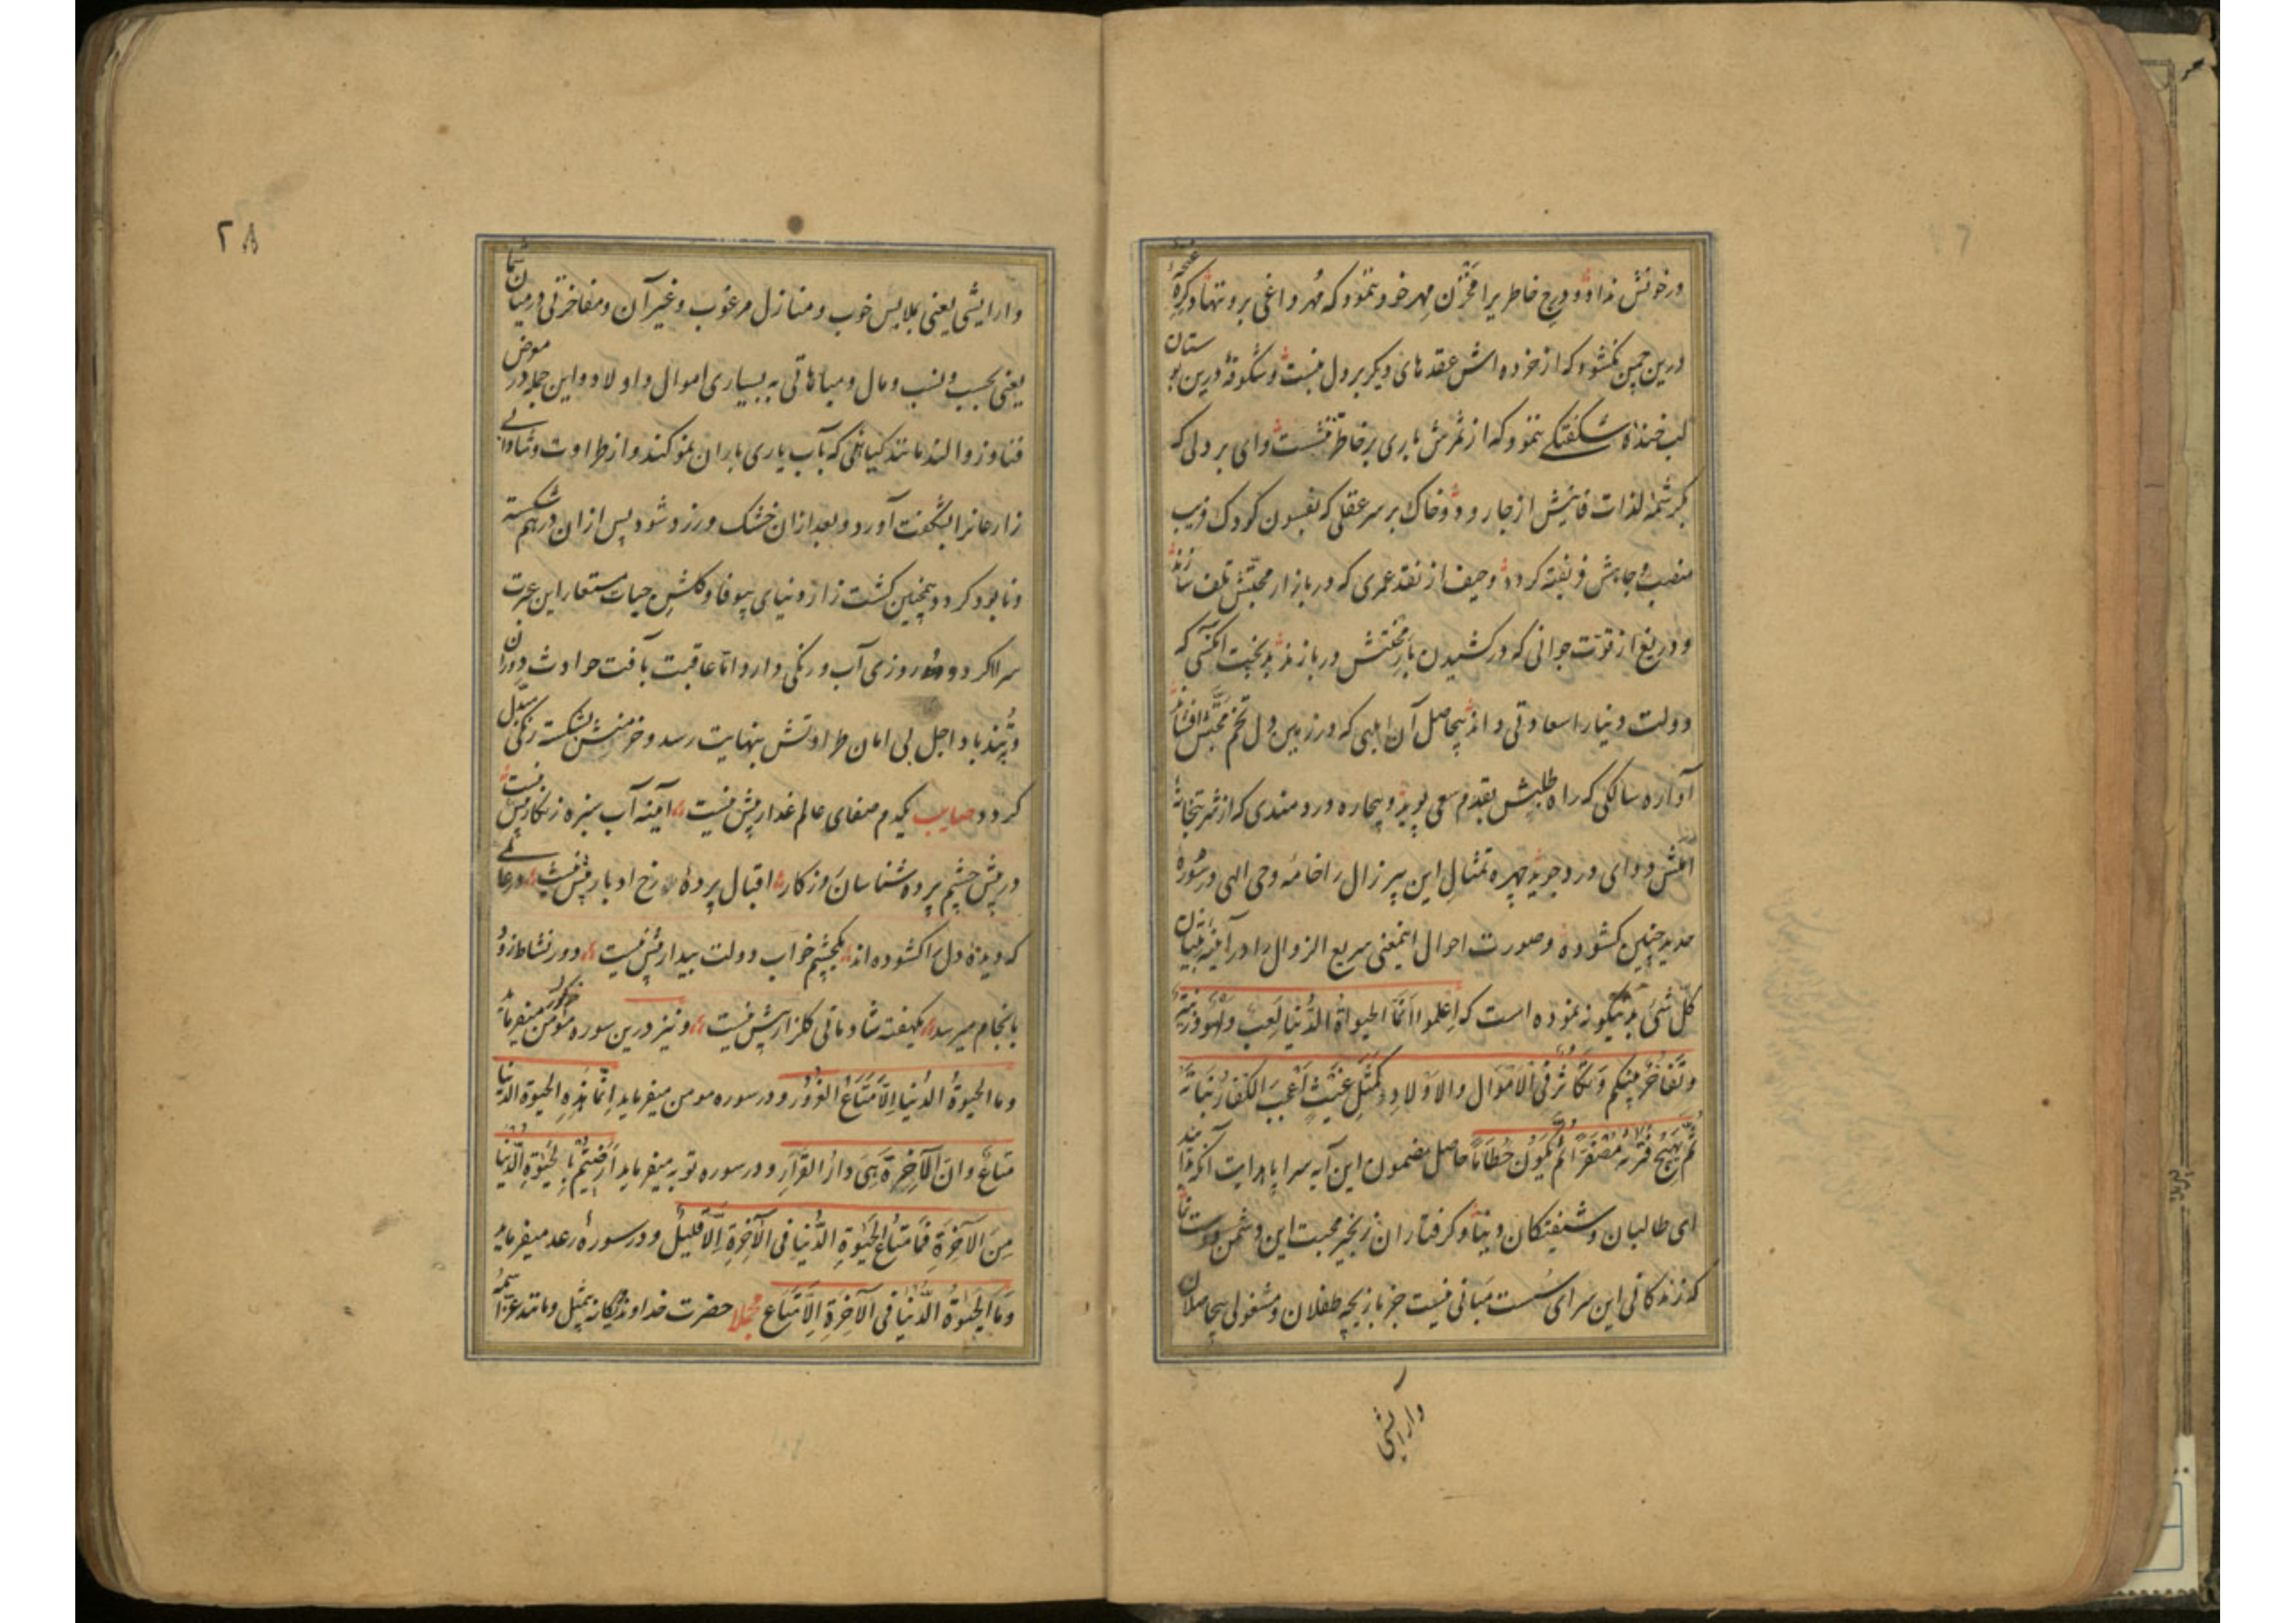 درخونش نداد و درج خاطر پرا مخزن مهر خود ننمود که مهر داغی برو ننهاد گره غنچهٔ
درین چمن نگشود که از خرده اش عقدهای دیگر بر دل نبست و شکوفهٔ درین بوستان
لب خنده شکفتگی ننمود که از ثمرش باری بر خاطر ننشست وای بر دلی که
بکرشمهٔ لذات فانیش از جا رود و خاک بر سر عقلی که بفسون کودک فریب
منصب و جاهش فریفته کردد و حیف از نقد عمری که در بازار محبتش تلف سازند
و دریغ از قوّت جوانی که در کشیدن بار محنتش دربازند بدبخت آنکسی که
دولت دنیا را سعادتی داند بیحاصل آن ابلهی که در زمین دل تخم محبّتش افشاند
آواره سالکی که راه طلبش بقدم سعی پوید و بیچاره دردمندی که از شربتخانهٔ
المش دوای درد جوید چهره تمثال این پیر زال را خامه وحی الهی در سورهٔ
حدید چنین کشوده و صورت احوال اینمعنی سریع الزوال را در آئینهٔ تبیان
کلّ شئ بدینگونه نموده است که اِعلموا اَنّمَا الحیوةُ الدُّنیا لَعِب وَلَهو وَزینَةٌ
وتَفاخُرٌ بینکم وَتَکاثُرٌ فی الاَموَال والاَولادِ کَمَثَلِ غَیثٍ اَعْجَبَ الکُفّارَ نَباتُهُ
ثُمَّ یَهِیجُ فَتَریهُ مُصْفَرّاً ثُمَّ یَکُونُ حُطاماً حاصل مضمون این آیه سراپا هدایت آنکه بدانید
ای طالبان و شیفتکان دنیا و کرفتاران زنجیر محبت این دشمن دوست نما
که زندکانی این سرای سُست مَبانی نیست جز بازیچه طفلان و مشغولی بیحاصلان
وارایشی
۲۸
وارایشی یعنی بملابس خوب و منازل مرغوب و غیر آن و مفاخرتی درمیان شما
یعنی بحسب و نسب و مال و مباهاتی به بسیاری اموال و اولاد و این جمله در معرض
فنا و زوالند مانند کیاهی که بآب یاری باران نمو کند و از طراوت و شادابی
زارعانرا بشکفت آورد و بعد ازان خشک و زرد شود پس ازان درهم شکسته
و نابود کردد همچنین کشت زار دنیای بیوفا و کلشن حیات مستعار این عبرت
سرا اکر دو روزی آب و رنکی دارد امّا عاقبت بآفت حوادث دوران
و تُند باد اجل بی امان طراوتش بنهایت رسد و خرمنش بشکسته رنکی مبدّل
کردد صایب یکدم صفای عالم غدار بیش نیست آینه آب سبزه زنکار بیش نیست
در پیش چشم پرده شناسان روزکار اقبال پردهٔ رخ ادبار بیش نیست درعالمی
که دیدهٔ دل را کشوده اند یکچشم خواب دولت بیدار بیش نیست دور نشاط زود
بانجام میرسد یکهفته شادمانی کلزار بیش نیست و نیز درین سوره مذکور میفرماید
وما الحیوةُ الدُنیا اِلّا مَتَاعُ الغُرُور و در سوره مومن میفرماید اِنّما هٰذِهِ الحیوة الدّنیا
مَتاعٌ وانّ الآخِرةَ هِیَ دارُ القَرارِ و در سوره توبه میفرماید اَرَضیتُم بِالحَیٰوةِ الدُّنیا
مِنَ الآخِرَةِ فَما مَتاعُ الحَیٰوةِ الدُّنیا فی الآخِرَةِ اِلّا قَلیلٌ و در سورهٔ رعد میفرماید
وَمَا الحَیٰوةُ الدُّنیا فی الآخِرَةِ اِلّا مَتَاع مجملا حضرت خداوند یکانه بیمثل و مانند عزّ اسمه